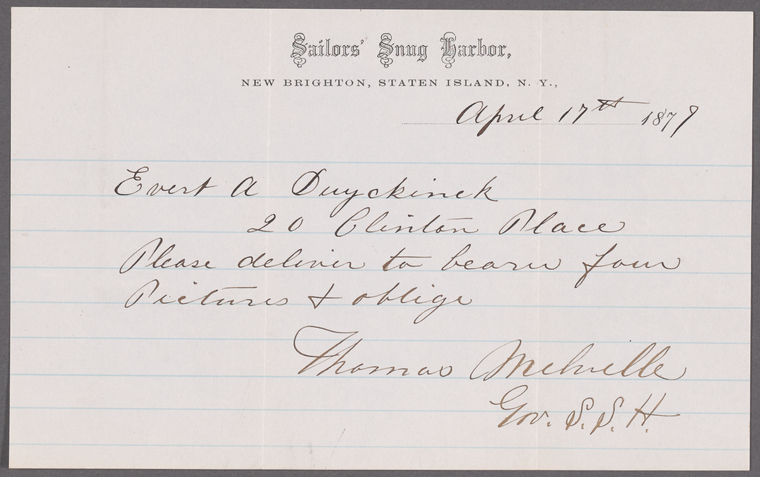 Sailors' Snug Harbor,
NEW BRIGHTON, STATEN ISLAND, N. Y.,
April 17th 1879
Evert A Duyckinck
20 Clinton Place
Please deliver to bearer four
Pictures & oblige
Thomas Melville
Gov. S. S. H.